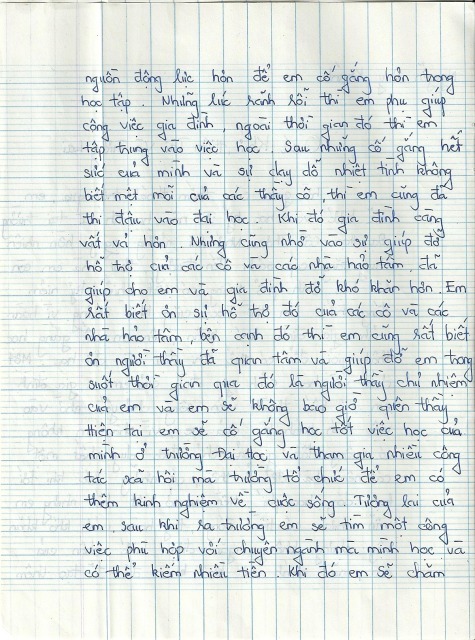 nguồn động lực hơn để em cố gắng hơn trong
học tập. Những lúc rảnh rỗi thì em phụ giúp
công việc gia đình, ngoài thời gian đó thì em
tập trung vào việc học. Sau những cố gắng hết
sức của mình và sự dạy dỗ nhiệt tình không
biết mệt mỏi của các thầy cô, thì em cũng đã
thi đậu vào đại học. Khi đó gia đình càng
vất vả hơn. Nhưng cũng nhờ vào sự giúp đỡ
hỗ trợ của các cô và các nhà hảo tâm, đã
giúp cho em và gia đình đỡ khó khăn hơn. Em
rất biết ơn sự hỗ trợ đó của các cô và các
nhà hảo tâm, bên cạnh đó thì em cũng rất biết
ơn người thầy đã quan tâm và giúp đỡ em trong
suốt thời gian qua đó là người thầy chủ nhiệm
của em và em sẽ không bao giờ quên thầy
Hiện tại em sẽ cố gắng học tốt việc học của
mình ở trường Đại học và tham gia nhiều công
tác xã hội mà trường tổ chức để em có
thêm kinh nghiệm về cuộc sống. Tương lai của
em sau khi ra trường em sẽ tìm một công
việc phù hợp với chuyên ngành mà mình học và
có thể kiếm nhiều tiền. Khi đó em sẽ chăm